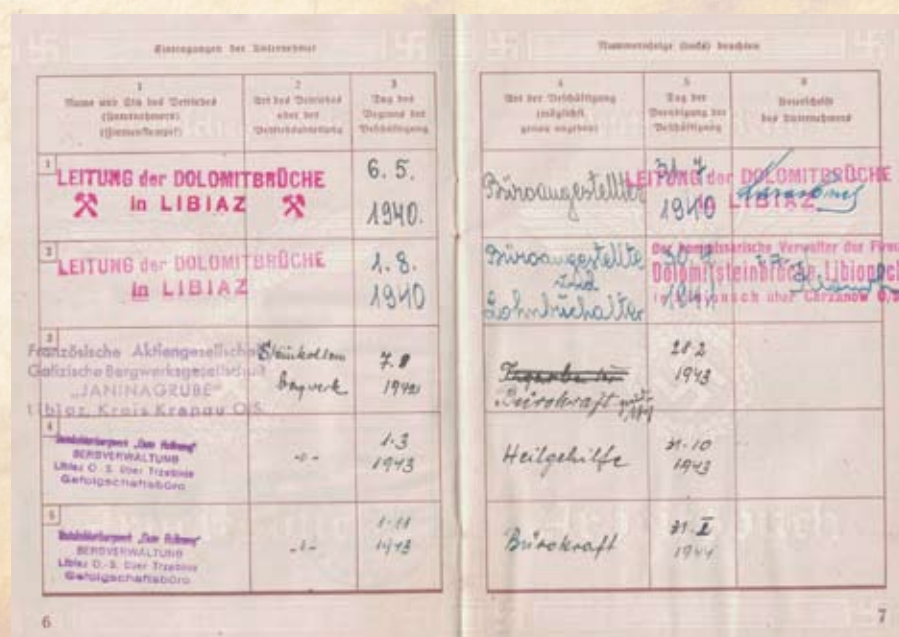 Eintragungen der Unternehmer
1
Name und Sitz des Betriebes
(Unternehmers)
(Firmenstempel)
2
Art des Betriebes
oder der
Betriebsabteilung
3
Tag des
Beginns der
Beschäftigung
1
LEITUNG der DOLOMITBRÜCHE
in LIBIAZ
6. 5.
1940.
2
LEITUNG der DOLOMITBRÜCHE
in LIBIAZ
1. 8.
1940
3
Französische Aktiengesellschaft
Galizische Bergwerksgesellschaft
"JANINAGRUBE"
Libiaz, Kreis Krenau O/S.
Steinkohlen
bergwerk
4
BERGVERWALTUNG
Libiaz O.-S. über Trzebinia
Gefolgschaftsbüro
1.3
1943
5
BERGVERWALTUNG
Libiaz O.-S. über Trzebinia
Gefolgschaftsbüro
1.11
1943
6
Nummernfolge (links) beachten
4
Art der Beschäftigung
(möglichst
genau angeben)
5
Tag der
Beendigung der
Beschäftigung
6
Unterschrift
des Unternehmers
Büroangestellter
31. 7
1940
LEITUNG der DOLOMITBRÜCHE
in LIBIAZ
Büroangestellte
und
Lohnbuchhalter
Der kommissarische Verwalter der Firma
Dolomitsteinbrüche
über Chrzanow
Bürokraft
28 2
1943
Heilgehilfe
31-10
1943
Bürokraft
1944
7